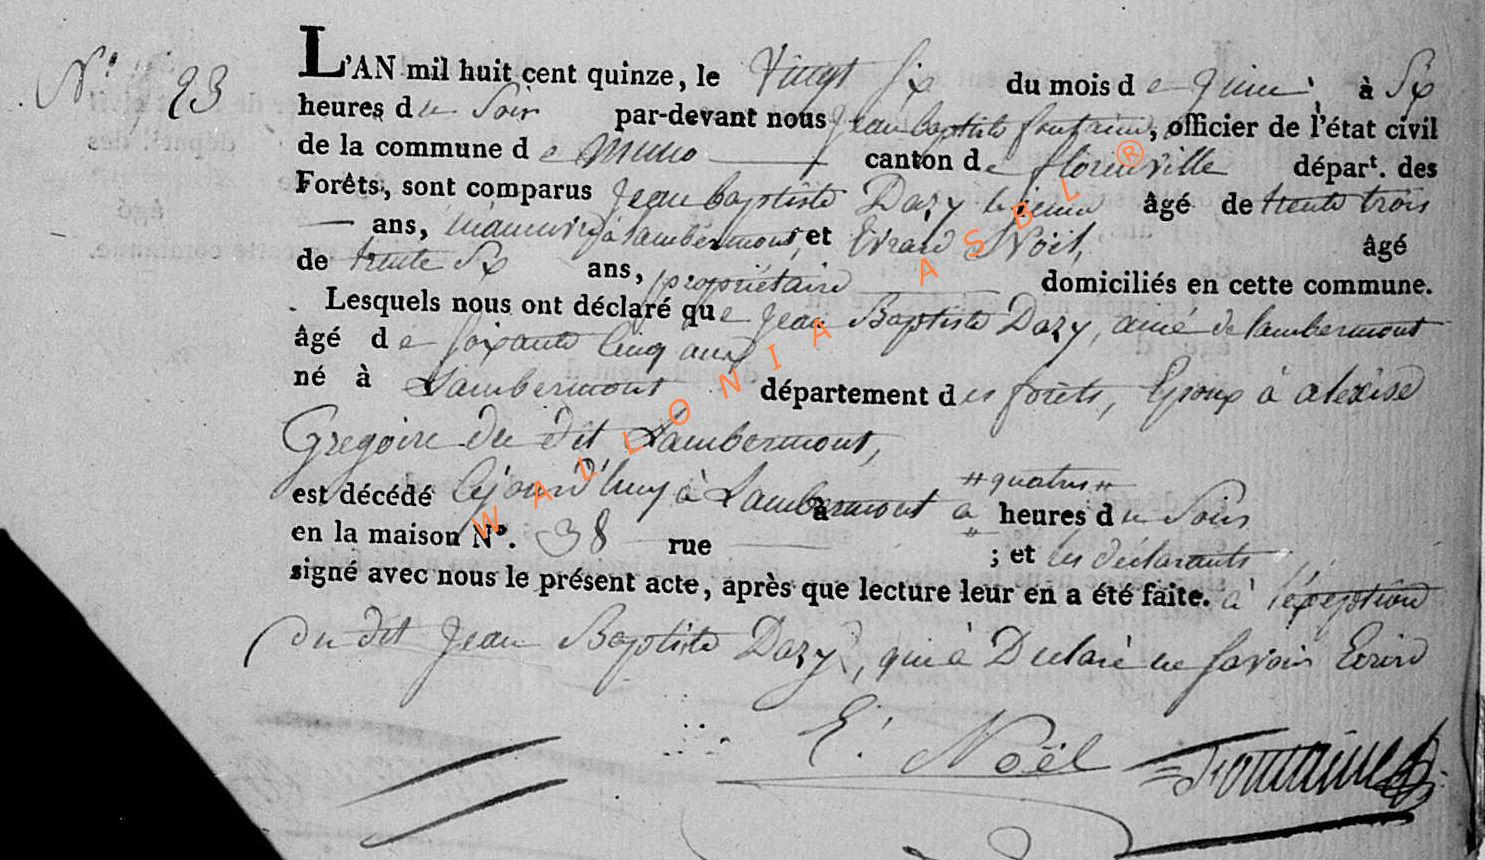 N° 23
L'AN mil huit cent quinze, le Vingt Six du mois de juin, à Six
heures du Soir par-devant nous Jean baptiste fontaine, officier de l'état civil
de la commune de Muno canton de florenville départ. des
Forêts, sont comparus Jean baptiste Dazy le jeune âgé de trente trois
ans, manuvre à lambermont, et Evrard Noël, âgé
de trente Six ans, propriétaire domiciliés en cette commune.
Lesquels nous ont déclaré que Jean Baptiste Dazy, ainé de lambermont
âgé de soixante Cinq ans
né à Lambermont département des forêts, Epoux à alexise
Gregoire du dit Lambermont,
est décédé Cejourd'huy à Lambermont à "quatre" heures du Soir
en la maison N°. 38 rue ; et les déclarants
signé avec nous le présent acte, après que lecture leur en a été faite. à l'exception
du dit Jean Baptiste Dazy, qui à Declaré ne savoir Ecrire
E. Noël Fontaine
WALLONIA ASBL ®